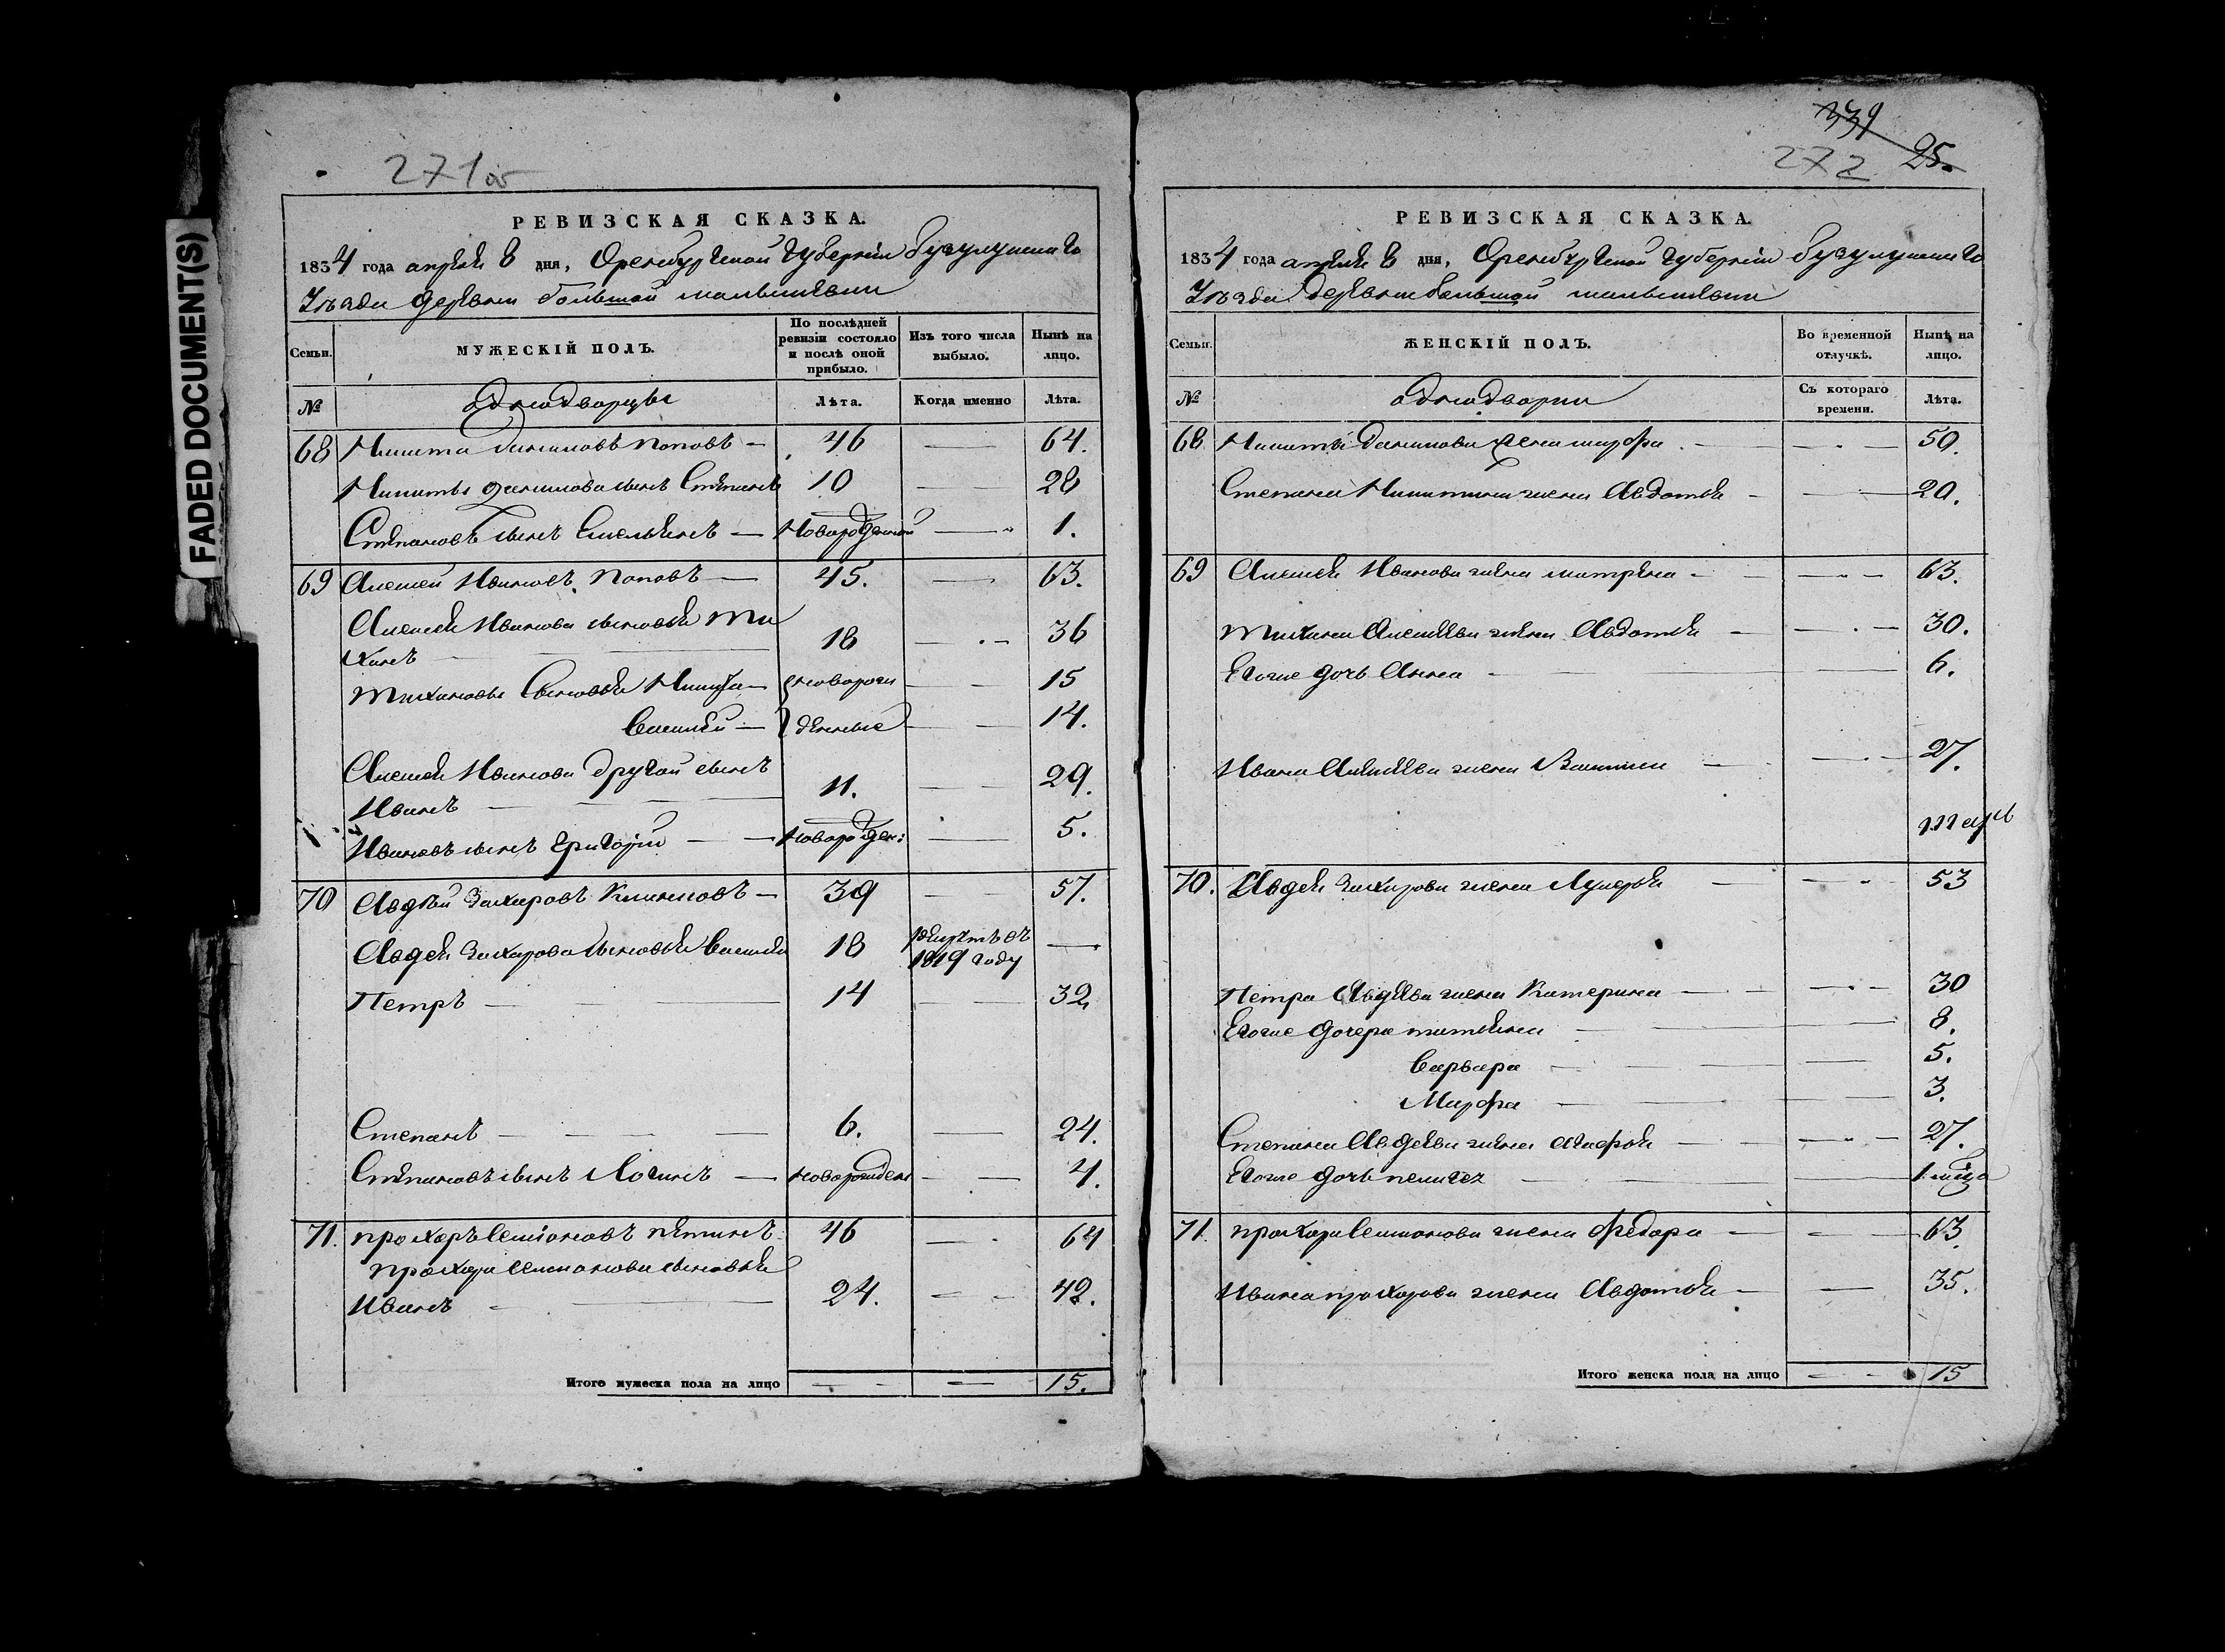 FADED DOCUMENT(S)
271об
РЕВИЗСКАЯ СКАЗКА.
1834 года апреля 8 дня, Оренбургской губернии бузулукскаго
Уезда деревни большой малышевки
Семьи.
МУЖЕСКІЙ ПОЛЪ.
По послѣдней ревизіи состояло и послѣ оной прибыло.
Изъ того числа выбыло.
Нынѣ на лицо.
№
однодворцы
Лѣта.
Когда именно
Лѣта.
68 Никита Даниловъ поповъ — 46 — 64.
Никиты данилова сынъ Степанъ 10 — 28
Степановъ сынъ Емельянъ — Новорожденной — 1.
69 Алексей Ивановъ Поповъ — 45. — 63.
Алексея Иванова сыновья Ти
хонъ — 18 — 36
Тихоновы Сыновья Никита — новорож — 15
Василий — денные — 14.
Алексея Иванова другой сынъ
Иванъ — 11. — 29.
Ивановъ сынъ Григорий — новорожден: — 5.
70 Авдѣй Захаровъ Климовъ — 39 — 57.
Авдея Захарова сыновья Василий 18 рекрутъ въ 1819 году —
Петръ — 14 — 32
Степанъ — 6. — 24.
Степановъ сынъ Логинъ — новорожден — 4.
71. прохоръ Семионовъ 46 — 64
прохора Семионова сыновья
Иванъ — 24. — 42.
Итого мужеска пола на лицо — — 15.
339
272 25.
РЕВИЗСКАЯ СКАЗКА.
1834 года апреля 8 дня, Оренбургской губернии бузулукскаго
Уезда деревни большой малышевки
Семьи.
ЖЕНСКІЙ ПОЛЪ.
Во временной отлучкѣ.
Нынѣ на лицо.
№
однодворки
Съ котораго времени.
Лѣта.
68 Никиты Данилова жена марфа — 50.
Степана Никитина жена Авдотья — 20.
69 Алексея Иванова жена матрена — 63.
Тихона Алексеева жена Авдотья — 30.
Егоже дочь Анна — 6.
Ивана Алексеева жена — 27.
70. Авдея Захарова жена Лукерья — 53
Петра Авдеева жена Катерина — 30
Егоже дочери татьяна — 8.
Варвара — 5.
Марфа — 3.
Степана Авдеева жена — 27.
Егоже дочь — 1
71. прохора Семионова жена Федора — 63
Ивана прохорова жена Авдотья — 35.
Итого женска пола на лицо — — 15